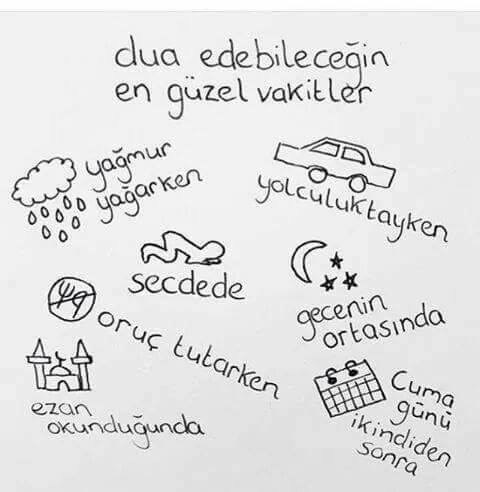 dua edebileceğin
en güzel vakitler
yağmur
yağarken
yolculuktayken
secdede
gecenin
ortasında
oruç tutarken
ezan
okunduğunda
Cuma
günü
ikindiden
sonra